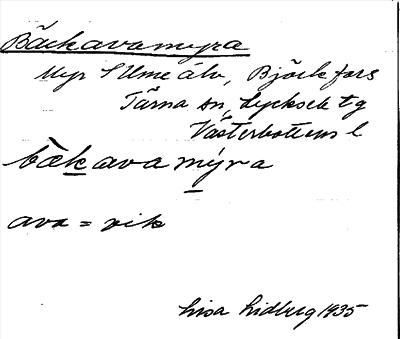 Bäckavamyra
Myr S Ume älv, Björkfors
Tärna sn, Lycksele tg
Västerbottens l
bækava mýra
ava = vik
Lisa Lidberg 1935